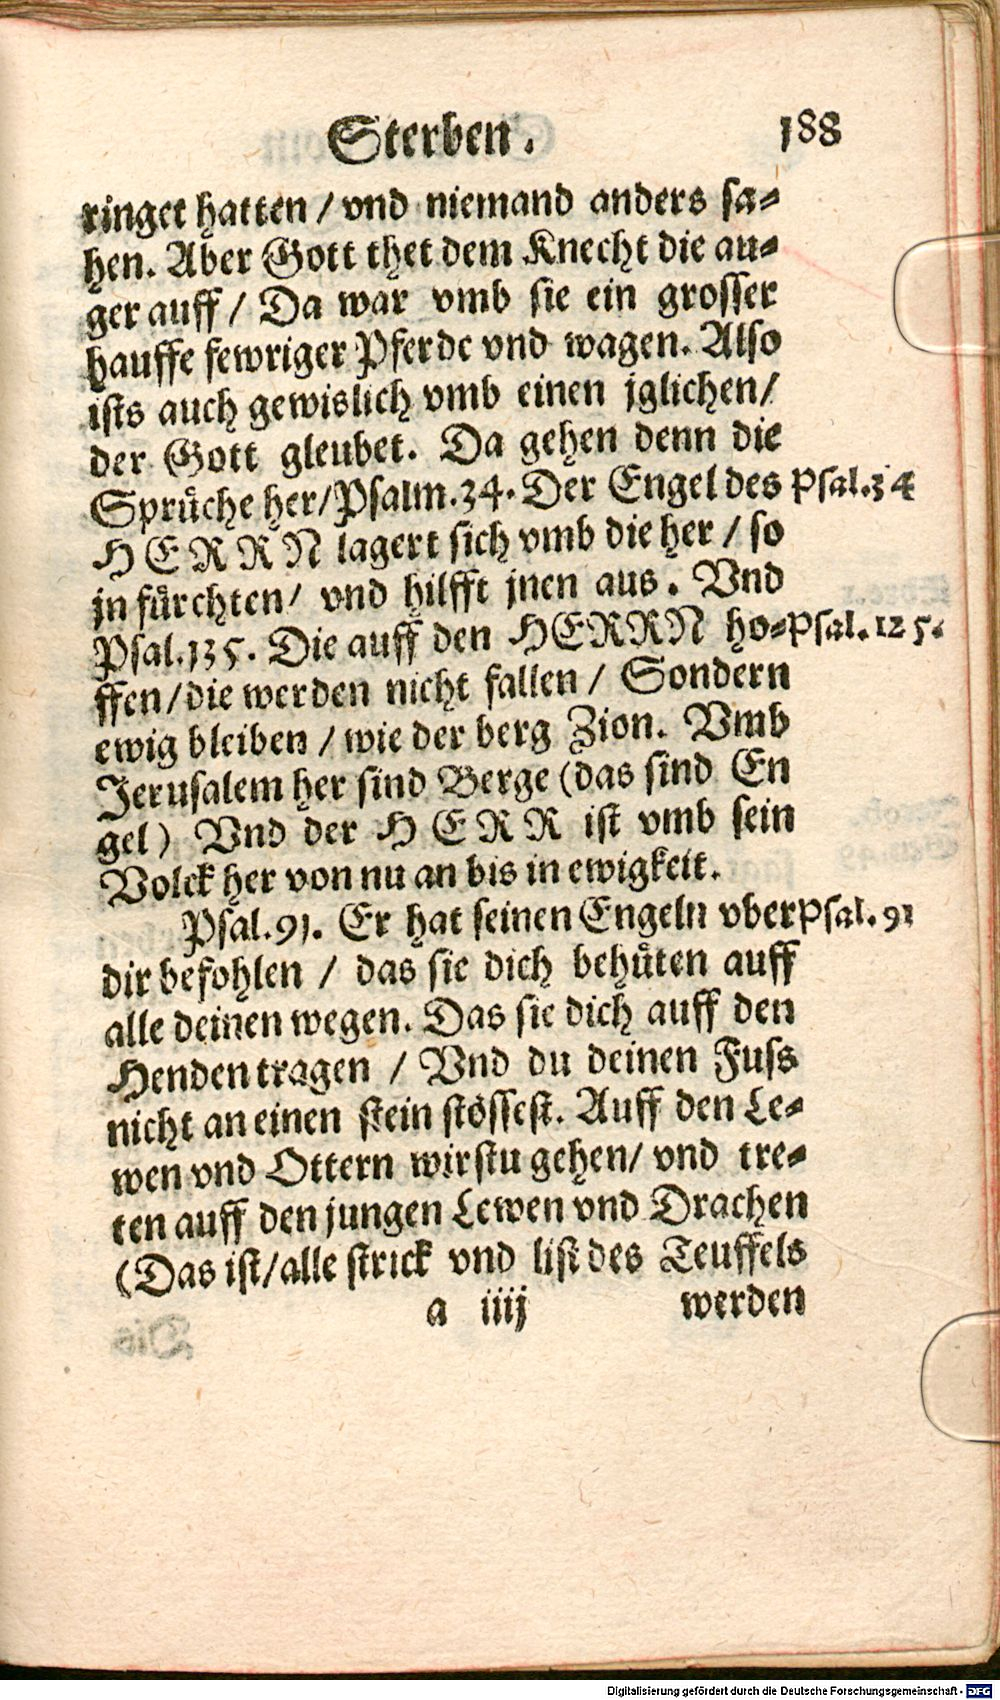 Sterben. 188
ringet hatten / vnd niemand anders sa-
hen. Aber Gott thet dem Knecht die au-
ger auff / Da war vmb sie ein grosser
hauffe fewriger Pferde vnd wagen. Also
ists auch gewislich vmb einen jglichen /
der Gott gleubet. Da gehen denn die
Sprüche her / Psalm. 34. Der Engel des Psal. 34
HERRN lagert sich vmb die her / so
jn fürchten / vnd hilfft jnen aus. Vnd
Psal. 135. Die auff den HERRN ho- Psal. 125.
ffen / die werden nicht fallen / Sondern
ewig bleiben / wie der berg Zion. Vmb
Jerusalem her sind Berge (das sind En
gel) Vnd der HERR ist vmb sein
Volck her von nu an bis in ewigkeit.
Psal. 91. Er hat seinen Engeln vber Psal. 91
dir befohlen / das sie dich behüten auff
alle deinen wegen. Das sie dich auff den
Henden tragen / Vnd du deinen Fuss
nicht an einen stein stössest. Auff den Le-
wen vnd Ottern wirstu gehen / vnd tre-
ten auff den jungen Lewen vnd Drachen
(Das ist / alle strick vnd list des Teuffels
a iiij werden
Digitalisierung gefördert durch die Deutsche Forschungsgemeinschaft - DFG